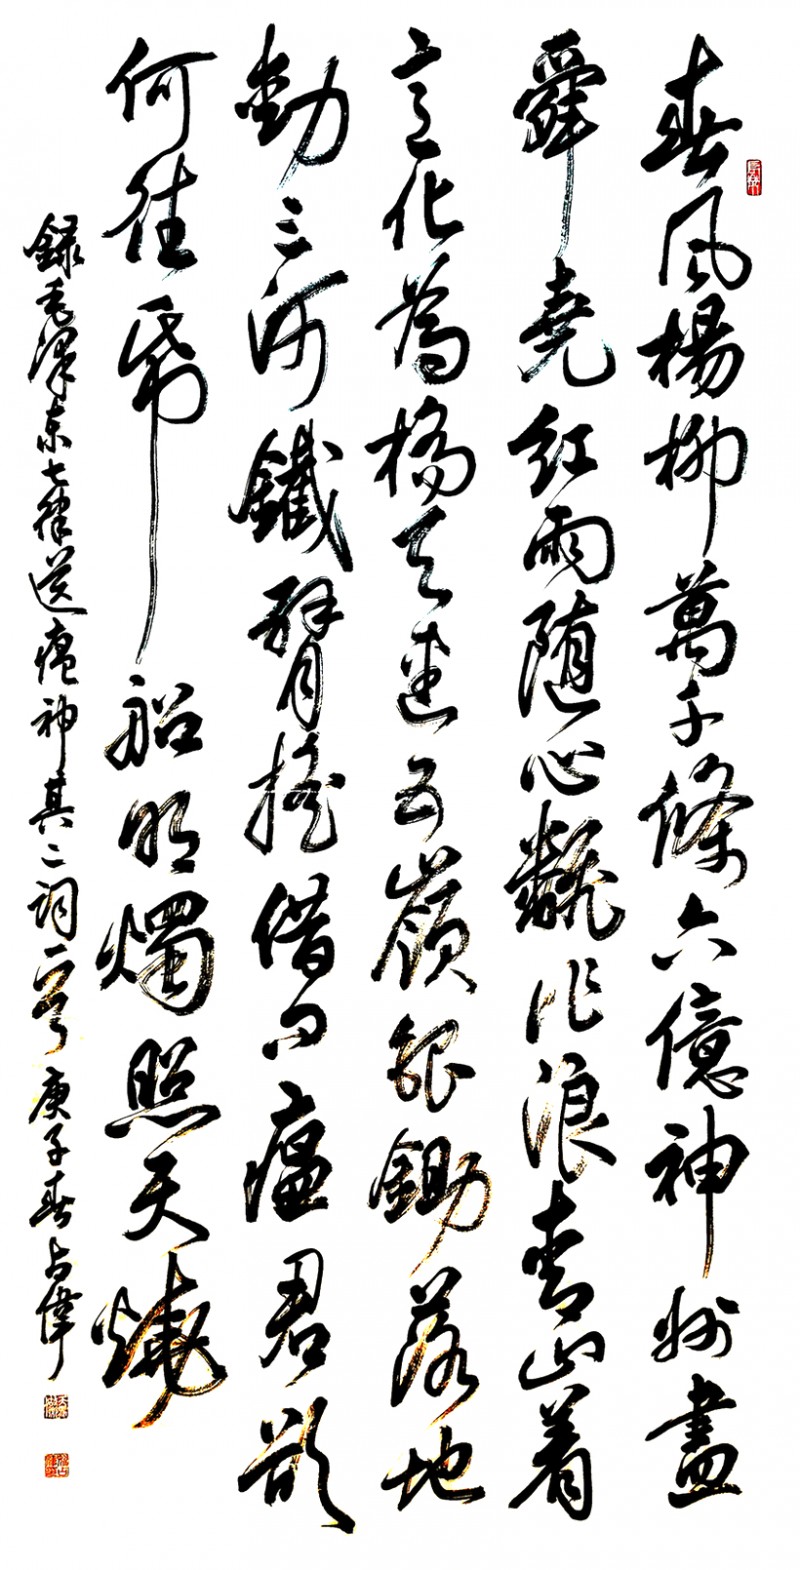 春风楊柳萬千條六億神州盡
舜堯红雨随心翻作浪青山着
意化為橋天連五嶺銀鋤落地
動三河鐵臂摇借问瘟君欲
何往纸船明燭照天燒
録毛澤东七律送瘟神其二詞一首 庚子春占偉